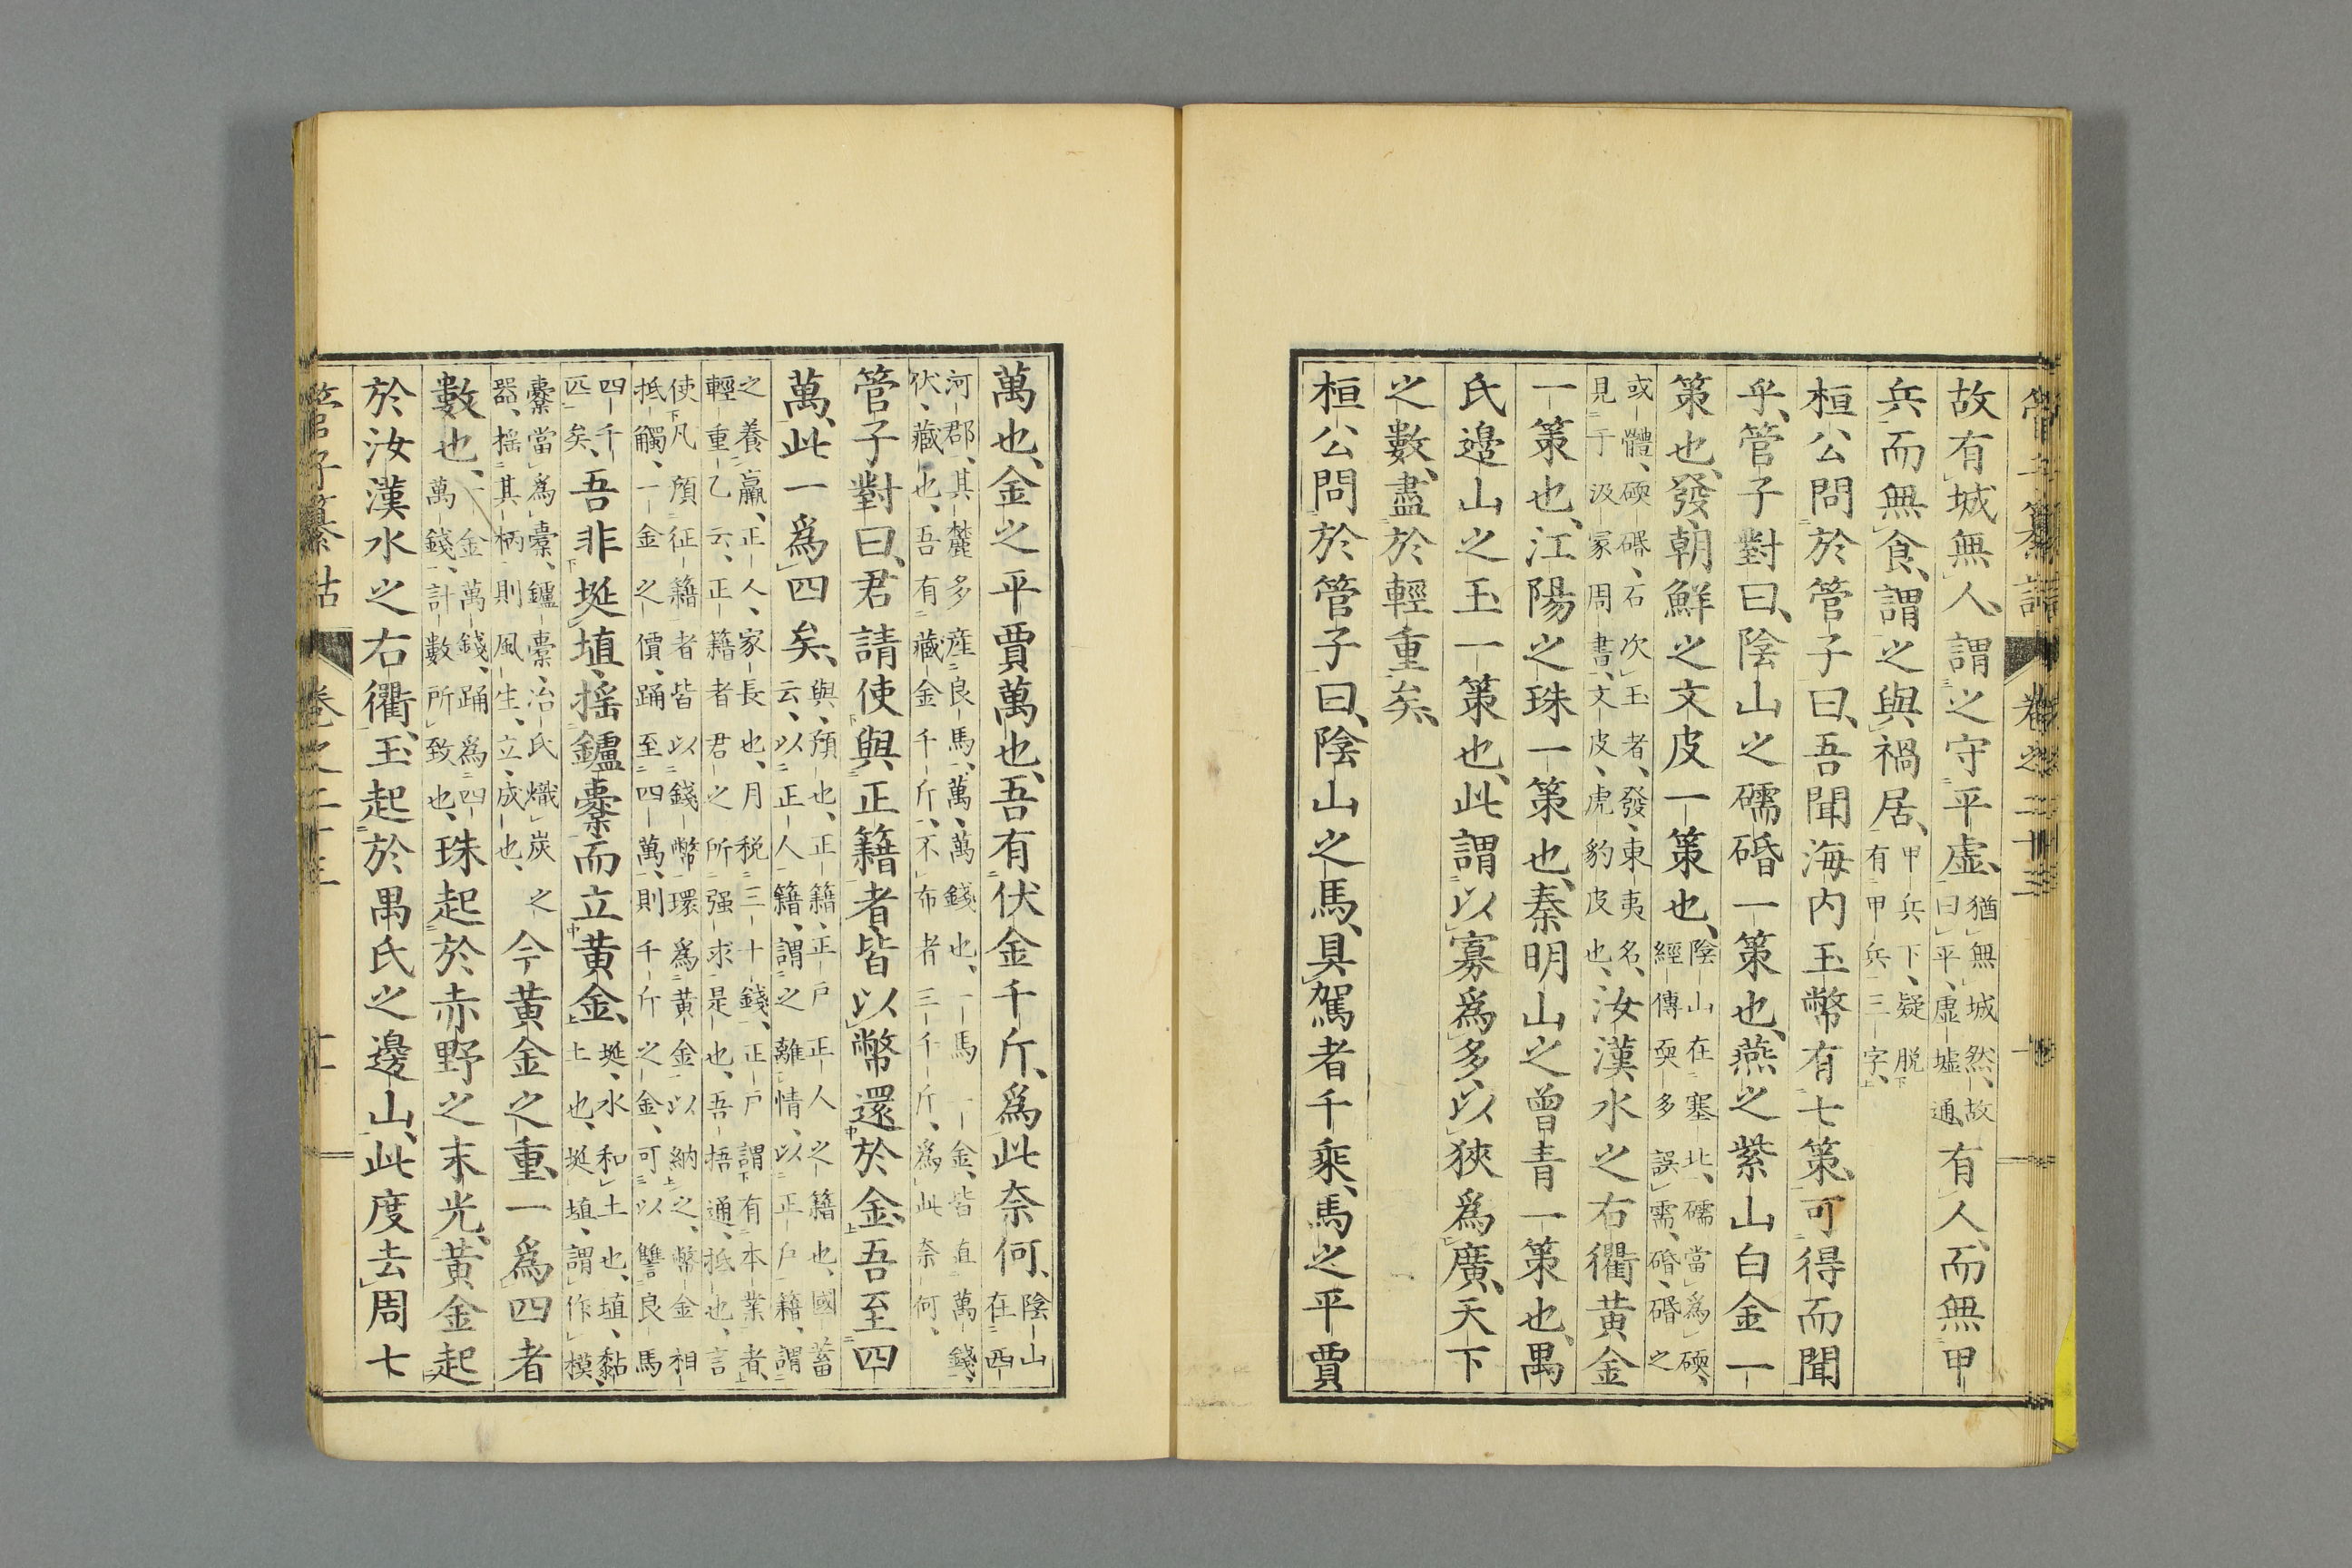 管子纂詁 卷之二十三
故有城無人、謂之守平虛、猶無城然、故曰平、虛墟通、有人、而無甲
兵而無食、謂之與禍居、甲兵下、疑脫有甲兵三字、
桓公問於管子曰、吾聞海内玉幣有七筴、可得而聞
乎、管子對曰、陰山之礝䃉一筴也、燕之紫山白金一
筴也、發、朝鮮之文皮一筴也、陰山在塞北、礝當爲碝、經傳耎多誤需、䃉、碈之
或體、碝碈、石次玉者、發、東夷名、見于汲冢周書、文皮、虎豹皮也、汝漢水之右衢黃金
一筴也、江陽之珠一筴也、秦明山之曾青一筴也、禺
氏邊山之玉一筴也、此謂以寡爲多、以狹爲廣、天下
之數、盡於輕重矣、
桓公問於管子曰、陰山之馬、具駕者千乘、馬之平賈
萬也、金之平賈萬也、吾有伏金千斤、爲此奈何、陰山在西
河郡、其麓多産良馬、萬、萬錢也、一馬一金、皆直萬錢、伏、藏也、吾有藏金千斤、不布者三千斤、爲此奈何、
管子對曰、君請使與正籍者、皆以幣還於金、吾至四
萬、此一爲四矣、與、預也、正籍、正戶正人之籍也、國蓄云、以正人籍、謂之離情、以正戶籍、謂
之養贏、正人、家長也、月税三十錢、正戶謂有本業者、輕重乙云、正籍者君之所强求是也、吾捂通、抵也、言
使凡預征籍者皆以錢幣環爲黃金以納之、幣金相抵觸、一金之價、踊至四萬、則千斤之金、可以讐良馬
四千匹矣、吾非埏埴、搖鑪櫜而立黃金、埏、水和土也、埴、黏土也、埏埴、謂作模、
櫜當爲橐、鑪橐、冶氏熾炭之器、搖其柄則風生、立、成也、今黃金之重、一爲四者
數也、一金萬錢、踊爲四萬錢、計數所致也、珠起於赤野之末光、黃金起
於汝漢水之右衢、玉起於禺氏之邊山、此度去周七
管子纂詁 卷之二十三 十一